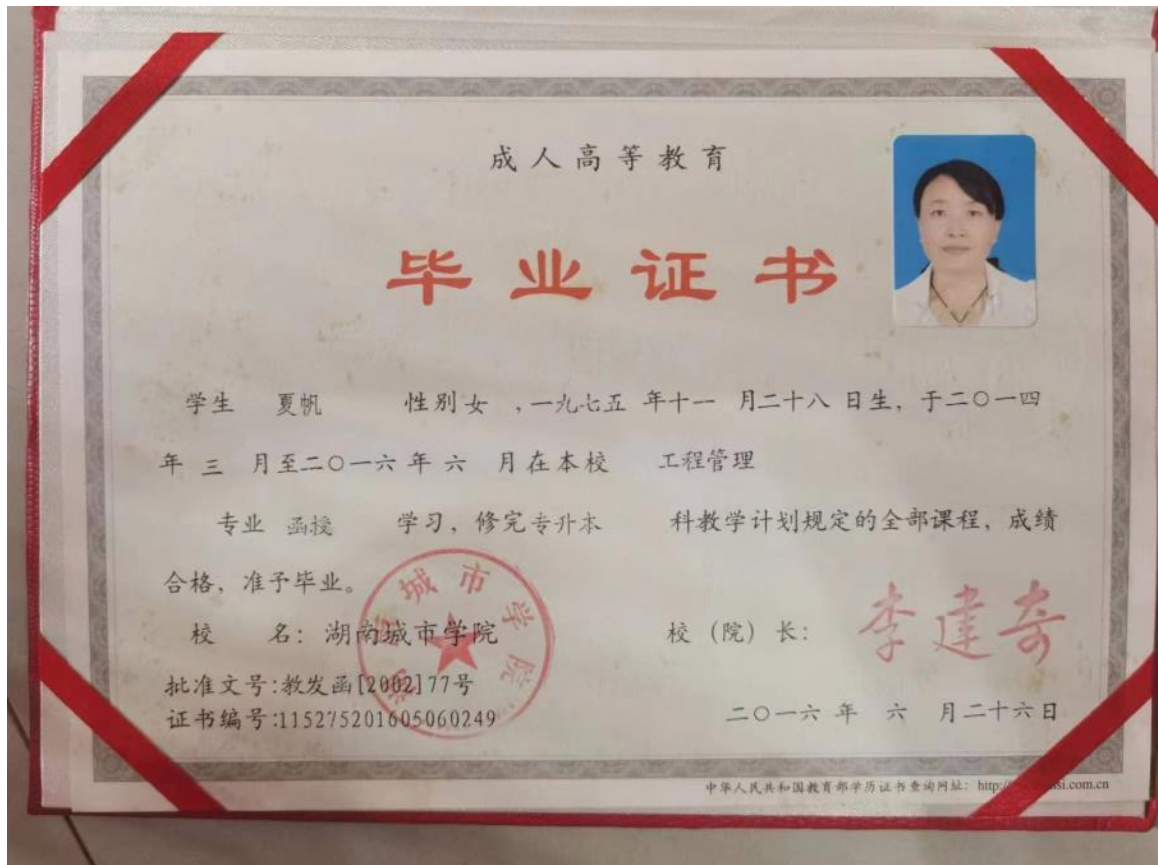 成人高等教育
毕业证书
学生 夏帆 性别 女 ,一九七五 年十一 月二十八 日生, 于二〇一四
年 三 月至二〇一六 年 六 月在本校 工程管理
专业 函授 学习, 修完专升本 科教学计划规定的全部课程, 成绩
合格, 准予毕业。
校 名: 湖南城市学院 校 (院) 长: 李建奇
批准文号:教发函[2002]77号
证书编号:115275201605060249 二〇一六 年 六 月二十六日
湖南城市学院
中华人民共和国教育部学历证书查询网址: http:// si.com.cn